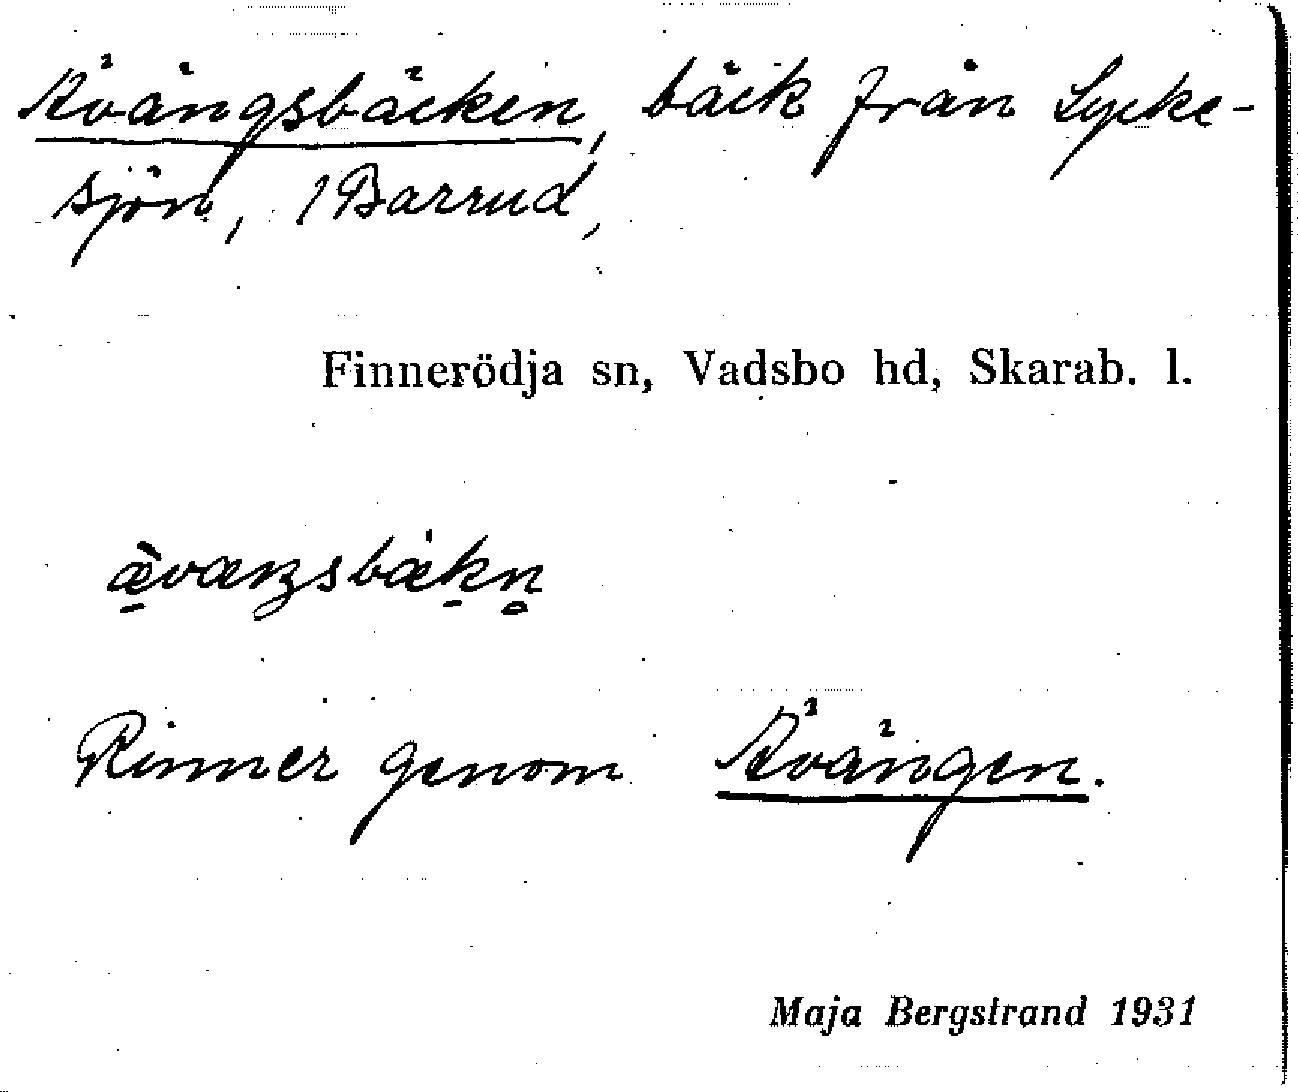 Ävängsbäcken, bäck från Lycke-
sjön, 1 Barrud,
Finnerödja sn, Vadsbo hd, Skarab. l.
æ̱̀væŋsbæ̍ḵn̥
Rinner genom Ävängen.
Maja Bergstrand 1931